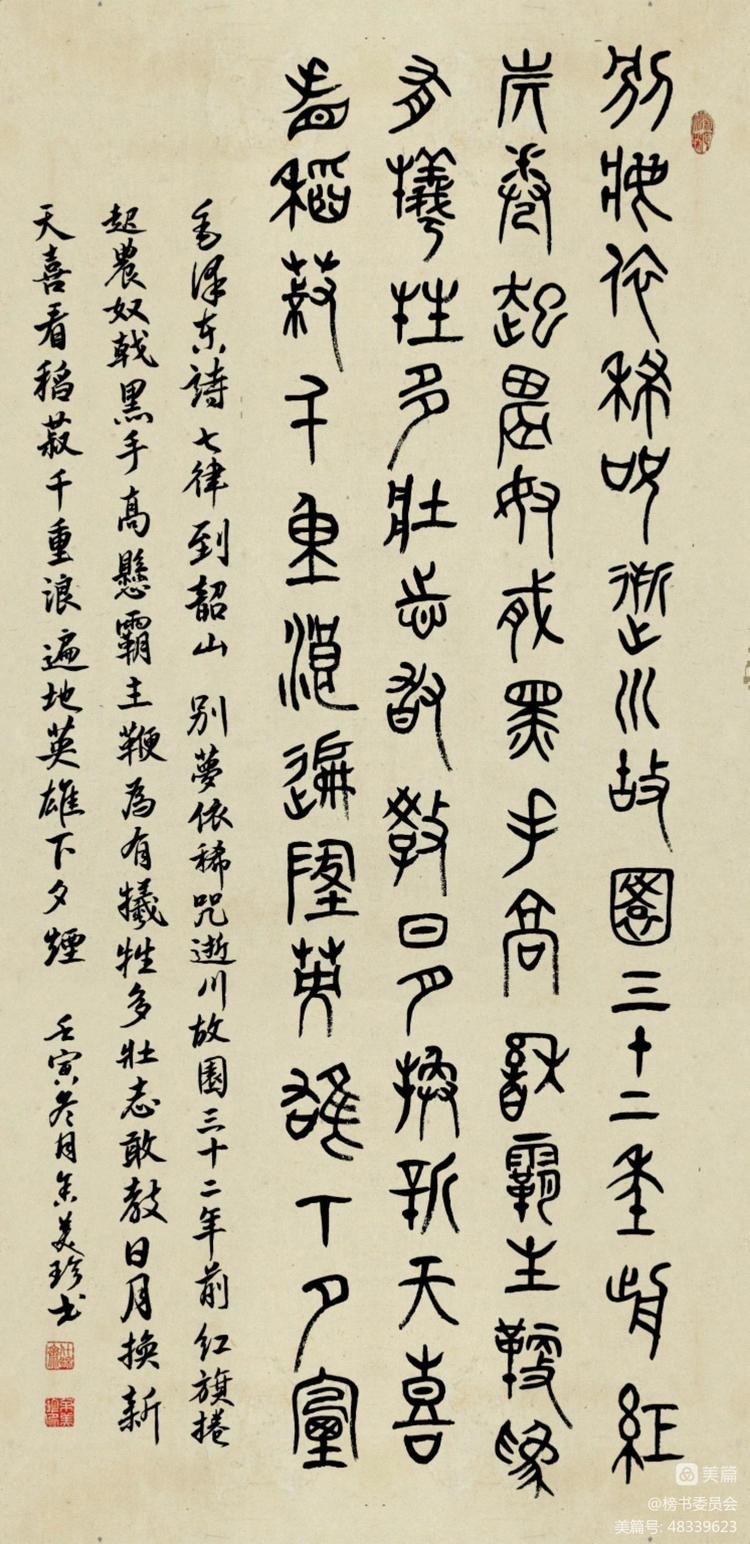 別夢依稀咒逝川故園三十二年前紅
旗卷起農奴戟黑手高懸霸主鞭為
有犧牲多壯志敢教日月換新天喜
看稻菽千重浪遍地英雄下夕煙
毛泽东詩七律到韶山 别夢依稀咒逝川故園三十二年前红旗捲
起農奴戟黑手高懸霸主鞭為有犧牲多壯志敢教日月換新
天喜看稻菽千重浪遍地英雄下夕煙 壬寅冬月余美珍书
美篇
@榜书委员会
美篇号: 48339623